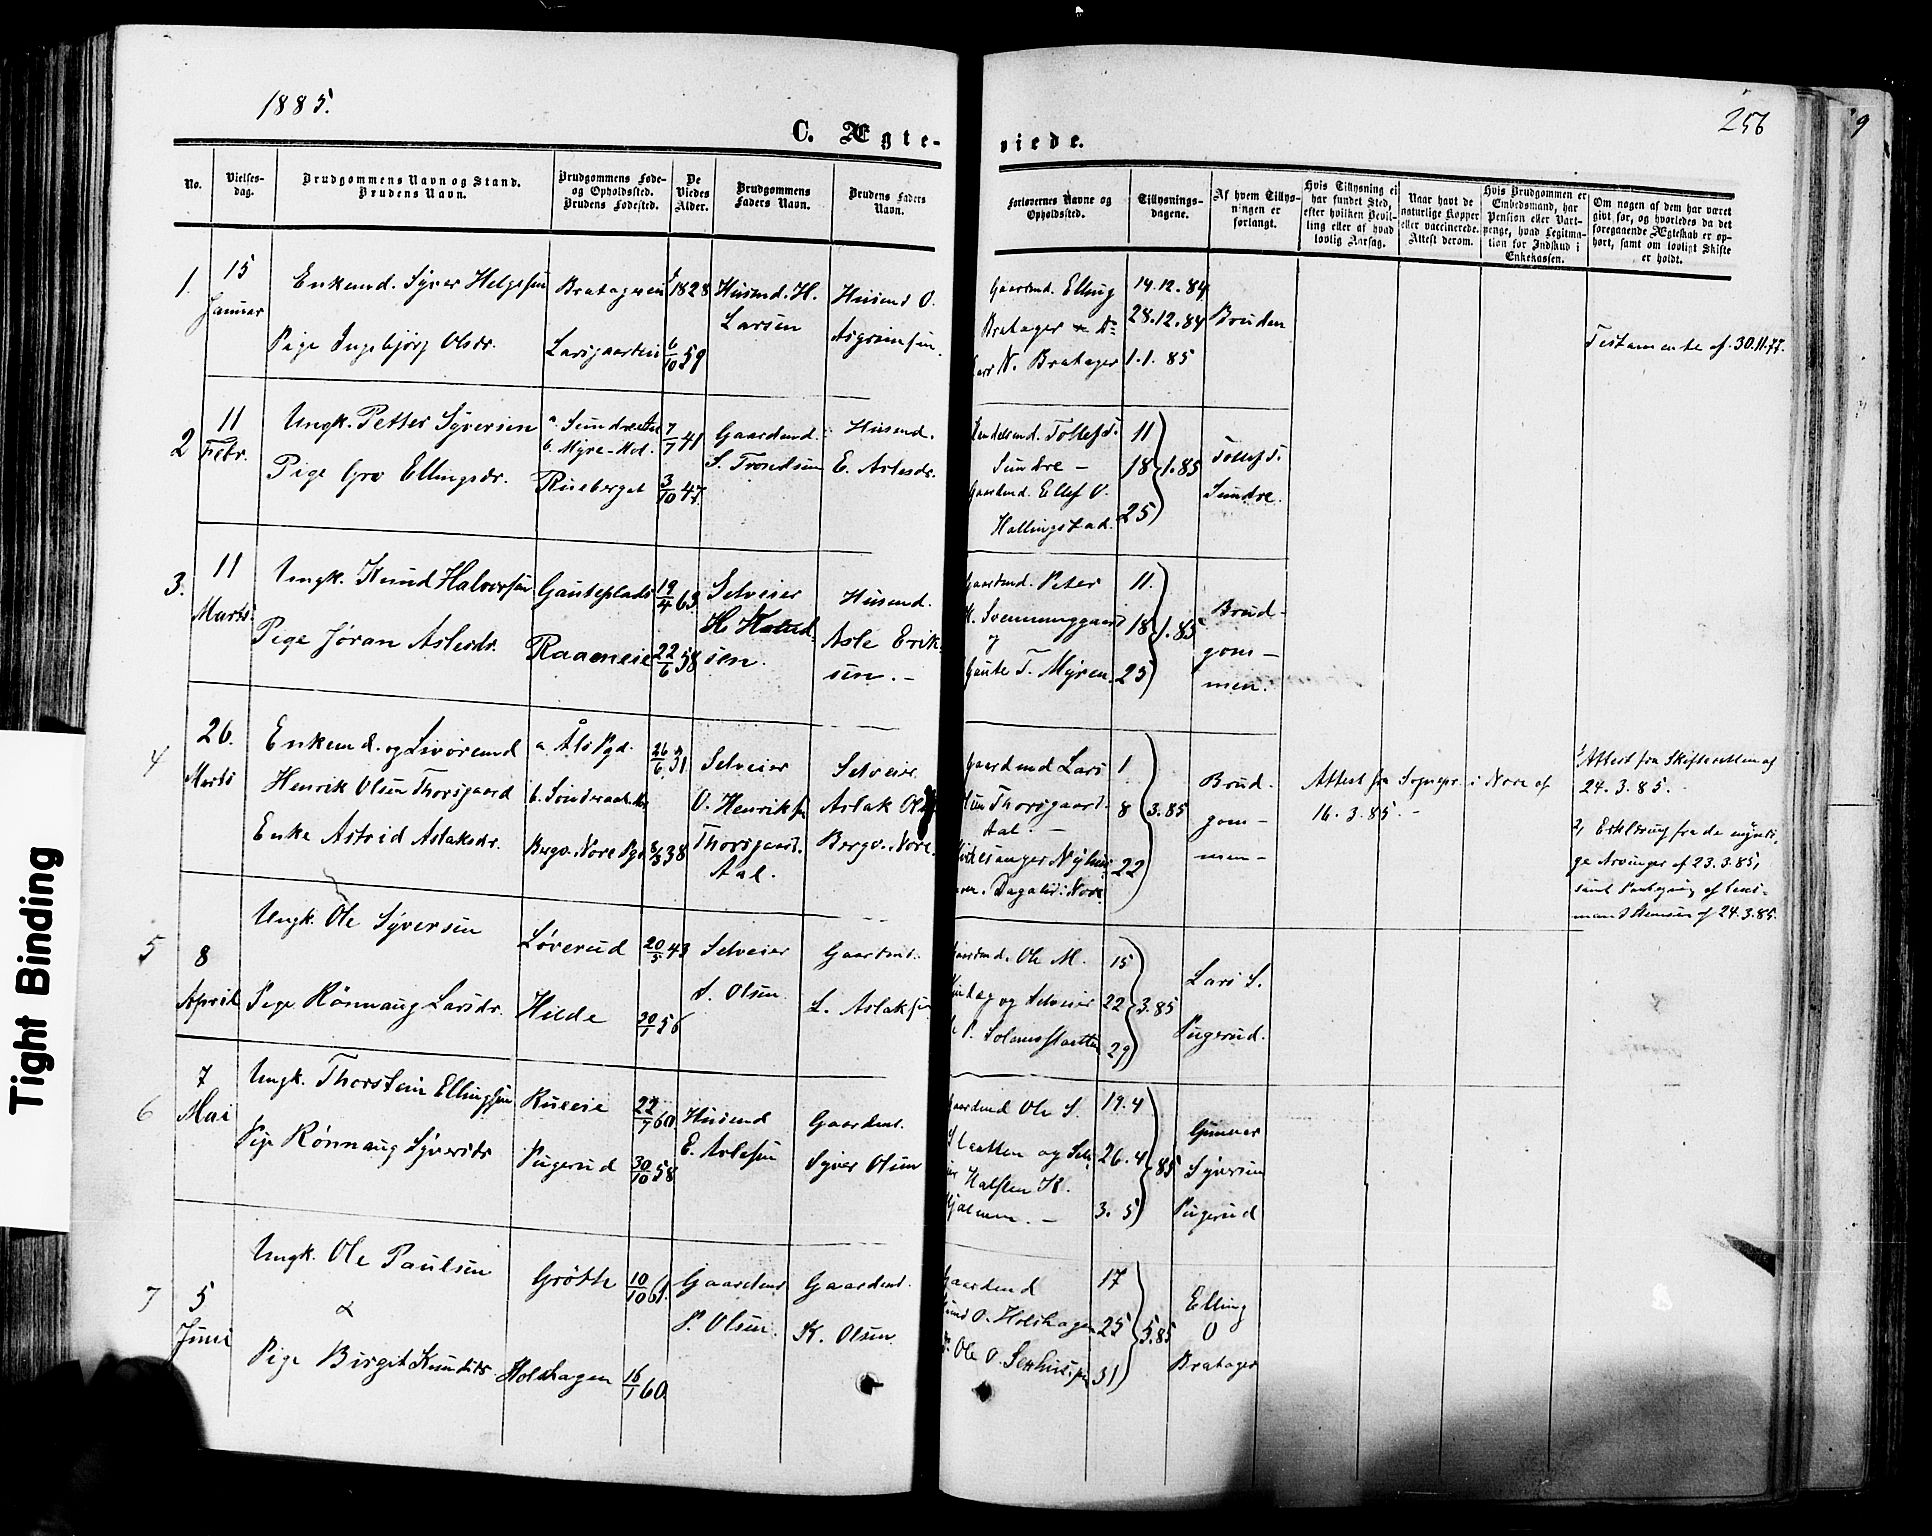 1885.
256
9
C. Ægteviede.
No.
Vielsesdag.
Brudgommens Navn og Stand.
Brudens Navn.
Brudgommens Føde- og Opholdssted.
Brudens Fødested.
De Viedes Alder.
Brudgommens Faders Navn.
Brudens Faders Navn.
Forlovernes Navne og Opholdssted.
Tillysningsdagene.
Af hvem Tillysningen er forlangt.
Hvis Tillysning ei har fundet Sted, efter hvilken Bevilling eller af hvad lovlig Aarsag.
Naar havt de naturlige Kopper eller vaccinerede. Attest derom.
Hvis Brudgommen er Embedsmand, har Pension eller Vartpenge, hvad Legitimation for Indskud i Enkekassen.
Om nogen af dem har været givt før, og hvorledes da det foregaaende Ægteskab er ophørt, samt om lovligt Skifte er holdt.
1.
15 Januar
Enkemd. Syver Helgesen
Pige Ingebjørg Olsdr.
Bratagereie
Larsgaarden
1828
6/10 59
Husmd. H. Larsen
Husmd O. Asgrimsen.
Gaardmd. Elling
Bratager
N. Bratager
14.12.84
28.12.84
1.1.85
Bruden
Testamente af 30.11.77.
2
11 Febr.
Ungk. Petter Syversen
Pige Gro Ellingsdr.
a. Sundre
b. Myre-Hol.
Rueberget
7/7 41
3/10 47.
Gaardmd. S. Trondsen
Husmd. E. Aslesen.
Tollef T. Sundre –
Gaardmd. Ellef O. Hallingstad.
11
18 1.85
25
Tollef T. Sundre.
3.
11 Marts.
Ungk. Knud Halvorsen
Pige Jøran Aslesdr.
Gauteplads
Raaeneie
19/4 63.
22/6 58
Selveier H. Knudsen.
Husmd. Asle Eriksen. –
Gaardmd. Peter
K. Svenunggaard
og
Gaute T. Myren.
11.
18 1.85
25
Brudgommen.
4
26. Marts
Enkemd. og Livøremd
Henrik Olsen Thorsgaard
Enke Astrid Aslaksdr.
a. Åls Pgd.
b. Sønderaal
Bergv. Nore Pgd
26/6 31
8/3 38
Selveier O. Henriksen Thorsgaard. Aal.
Selveier Aslak Olsen Bergv. Nore.
Gaardmd Lars
Olsen Thorsgaard. Aal. –
Kirkesanger Nyhus
Dagalid i Nore
1
8 3.85
22
Brudgommen –
Attest fra Sognepr. i Nore af 16.3.85. –
1, Attest fra Skifteretten af 24.3.85. –
2, Erklæring fra de myndige Arvinger af 23.3.85, samt Paategning af Lensmand Stensen af 24.3.85.
5
8 April
Ungk. Ole Syversen
Pige Rønnaug Larsdr.
Løverud
Hilde
20/5 43
20/1 56
Selveier S. Olsen
Gaardmd. L. Aslaksen
Gaardmd. Ole M.
og Selveier
P. Solemsslaatten
15
22 3.85
29
Lars S. Pugerud.
6
7 Mai
Ungk. Thorstein Ellingsen
Pige Rønnaug Syversdr
Rueeie
Pugerud
22/7 60
30/10 58
Husmd E. Aslesen
Gaardmd. Syver Olsen
Gaardmd Ole S.
Slaatten og Selveier
Halsten K.
19.4
26.4 85
3.5
Gunnar Syversen Pugerud
7
5 Juni
Ungk. Ole Paulsen
&
Pige Birgit Knudsdr.
Grøtte
Holshagen
10/10 61.
16/1 60
Gaardmd P. Olsen.
Gaardmd. K. Olsen
Gaardmd
Knud O. Holshagen
Ole O. Sexhus
17
25 5.85
31
Elling O Bratager
Tight Binding